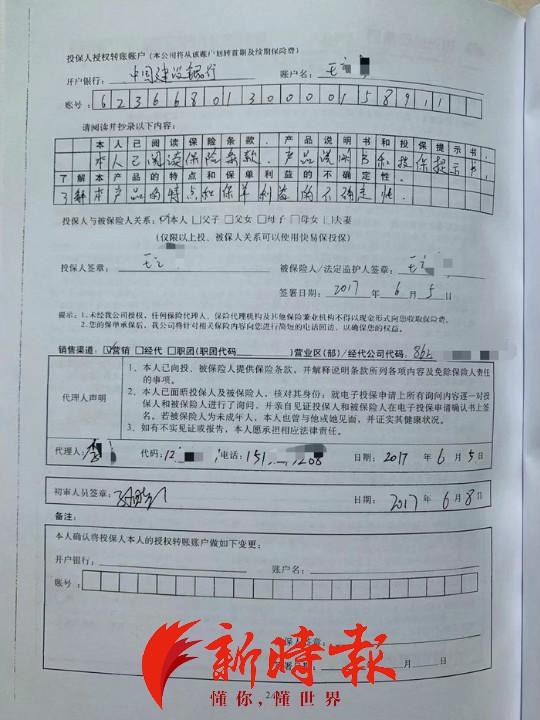 投保人授权转账账户(本公司将从该账户划转首期及续期保险费)
开户银行: 中国建设银行 账户名: 王
账号: 6236680130000158911
请阅读并抄录以下内容:
本人已阅读保险条款、产品说明书和投保提示书,
本人已阅读保险条款、产品说明书和投保提示书,
了解本产品的特点和保单利益的不确定性。
了解本产品的特点和保单利益的不确定性。
投保人与被保险人关系: ☑本人 □父子 □父女 □母子 □母女 □夫妻
(仅限以上投、被保人关系可以使用快易保投保)
投保人签章: 王 被保险人/法定监护人签章: 王
签署日期: 2017 年 6 月 5 日
提示:1.未经我公司授权,任何保险代理人、保险代理机构及其他保险兼业机构不得以现金形式向您收取保险费。
2.您的保单承保后,我公司将针对相关保险内容向您进行简短的电话回访,以确保您的权益。
销售渠道: ☑营销 □经代 □职团(职团代码 )营业区(部)/经代公司代码:
代理人声明
1. 本人已向投、被保险人提供保险条款,并解释说明条款所列各项内容及免除保险人责任
的事项。
2. 本人已面晤投保人及被保险人,核对其身份;就电子投保申请上所有询问内容逐一对投
保人和被保险人进行了询问,并亲自见证投保人和被保险人在电子投保申请确认书上签
名。若被保险人为未成年人,本人也曾与他或她见面,并证实其健康状况。
3. 如有不实见证或报告,本人愿承担相应法律责任。
代理人: 李 代码: 12 电话: 151 1208 日期: 2017 年 6 月 5 日
初审人员签章: 日期: 2017 年 6 月 8 日
备注:
本人确认将投保人本人的授权转账账户做如下变更:
开户银行: 账户名:
账号:
保人签章:
签署日期: 月 日
新時報
懂你,懂世界